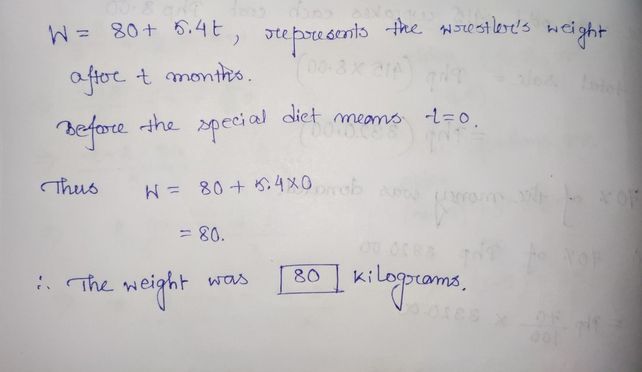 W = 80 + 5.4t, represents the wrestler's weight
after t months.
Before the special diet means t=0.
Thus W = 80 + 5.4×0
= 80.
∴ The weight was 80 kilograms.